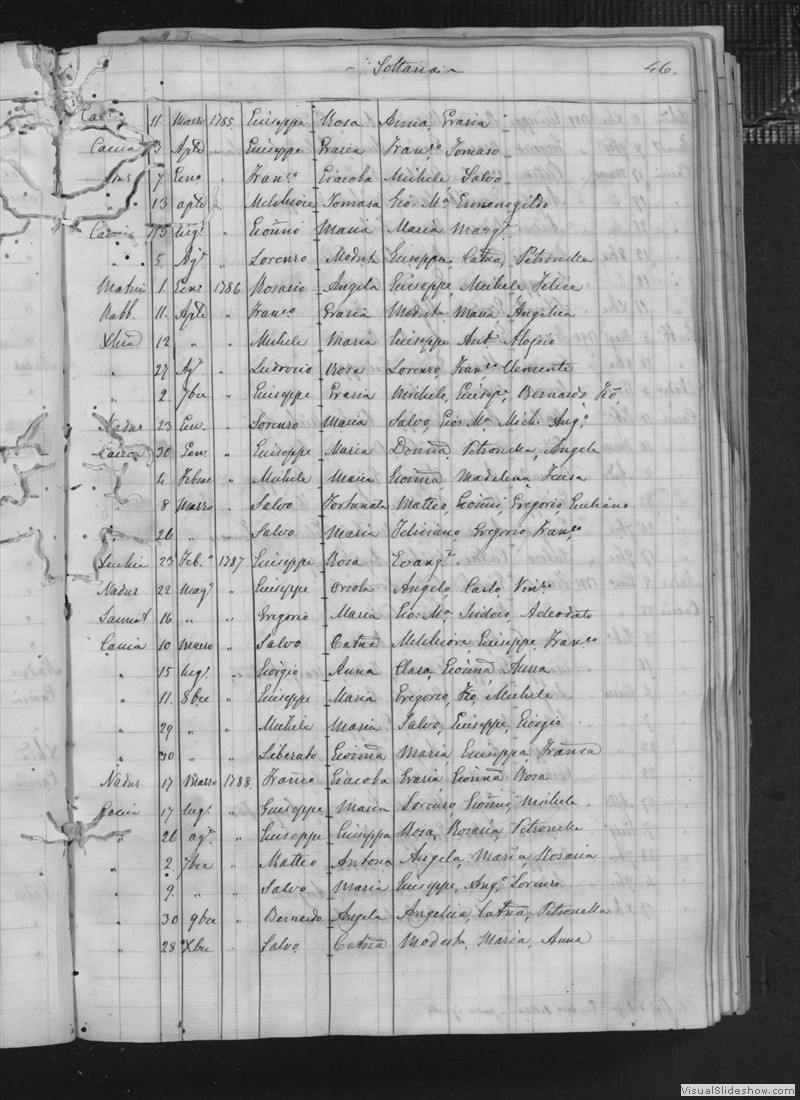 Soltana 46.
11 Marzo 1785 Giuseppe Rosa Anna, Grazia
Caccia 3 Aple „ Giuseppe Grazia Franco Tomaso
7 Geno „ Franco Giacoba Michele Salvo
„ 13 aple „ Melchiore Tomasa Gio: Ma Ermenegildo
15 Lugo „ Gioñni Maria Maria Margta
„ 5 Agto „ Lorenzo Modesta Giuseppa, Catña, Petronella
1 Geno 1786 Rosario Angela Giuseppe, Michele, Felice
Rabb. 11. Aple „ Franco Grazia Modesta Maria Angelica
12 „ „ Michele Maria Giuseppe Anto Aloysio
„ 27 Agto „ Ludovico Rosa Lorenzo, Franco Clemente
„ 2 7bre „ Giuseppe Grazia Michele, Giusepe, Bernardo,
Nadur 23 Gen. „ Lorenzo Maria Salvo, Gio: Ma Mich: Ango
Caccia 30 Gen. „ Giuseppe Maria Donña Petronella, Angela
4 Febraro „ Michele Maria Gioañña Madelena, Teresa
8 Marzo „ Salvo Fortunata Matteo, Gioñni, Gregorio Giuliano
„ 26 „ Salvo Maria Feliciano Gregorio Franco
23 Feb.o 1787 Giuseppe Rosa Evangta
Nadur 22 Mago „ Giuseppe Orsola Angelo, Carlo, Vinco
Sannat 16 „ „ Gregorio Maria Gio: Ma Isidoro, Adeodato
Caccia 10 Marzo „ Salvo Catña Melchiore, Giuseppe, Franco
„ 15 Lugo „ Giorgio Anna Clara, Gioañña Anna
„ 11. 8bre „ Giuseppe Maria Gregorio, Michele
„ 29 „ „ Michele Maria Salvo, Giuseppe, Giorgio
„ 30 „ „ Liberato Gioañña Maria, Giuseppa, Franca
Nadur 17 Marzo 1788 Franco Giacoba Grazia, Gioañña Rosa
Caccia 17 Lugo „ Giuseppe Maria Lorenzo Gioñni Michele
„ 26 agto „ Giuseppe Giuseppa Rosa, Rosaria, Petronella
„ 2 7bre „ Matteo Antonia Angela, Maria, Rosaria
„ 9. „ „ Salvo Maria Giuseppe, Ango, Lorenzo
„ 30 9bre „ Bernardo Angela Angelica, Catña, Petronella
„ 28 Xbre „ Salvo Catña Modesta, Maria, Anna
VisualSlideshow.com